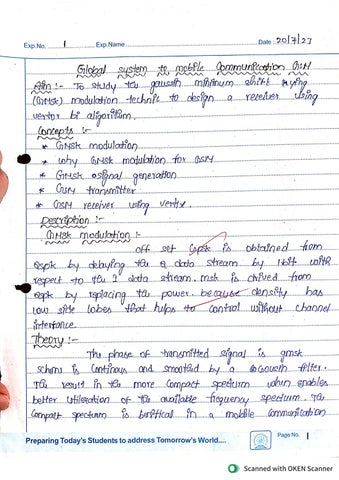 Exp.No. 1 Exp.Name Date: 20/7/23
Global system to mobile Communication GSM
Aim :- To study the gaussth minimum shift keying
(GMSK) modulation technic to design a receiver using
vertor bi algorithm.
Concepts :-
* GMSK modulation
* why GMSK modulation for GSM
* GMSK osignal generation
* GSM transmitter
* GSM receiver using vertor.
Description :-
GMSK modulation :-
off set Qpsk is obtained from
Qspk by delaying the Q data stream by 1bit with
respect to the I data stream. msk is drived from
oqpk by replacing the power. because density has
low side lobes that helps to control without channel
interfance.
Theory :-
The phase of transmitted signal is gmsk
schem is continous and smooted by a Gaouth filter.
The result in the more compact spectrum when enables
better utileration of the available frequency spectrum. The
compact spectrum is burifical in a mobile communication
Preparing Today's Students to address Tomorrow's World.... Page No. 1
Scanned with OKEN Scanner